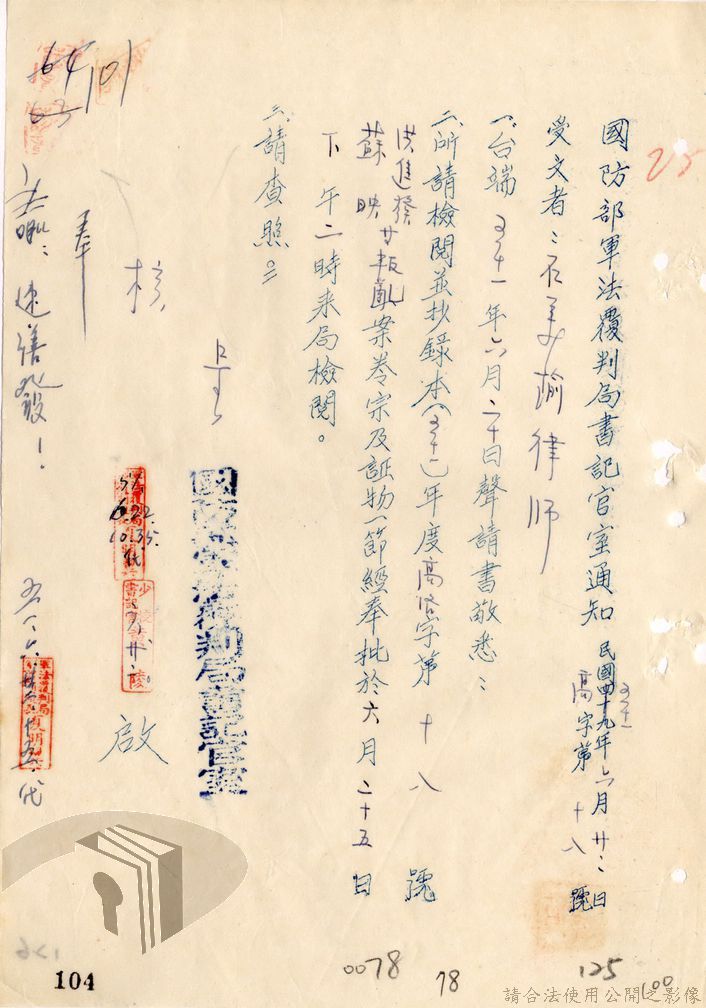 國防部軍法覆判局書記官室通知
民國四十九年六月廿二日
五十一
高字第十八號
受文者：石美瑜律師
一、台端五十一年六月二十日聲請書敬悉：
二、所請檢閱並抄錄本（五十一）年度高字第十八號
洪進發
蘇映 廿叛亂案卷宗及証物一節經奉批於六月二十五日
下午二時來局檢閱。
三、請查照。
國防部軍法覆判局書記官室
啟
奉
核
速繕發！
25
101
51
6.22.
10.35.
104
0078
78
125
100
請合法使用公開之影像